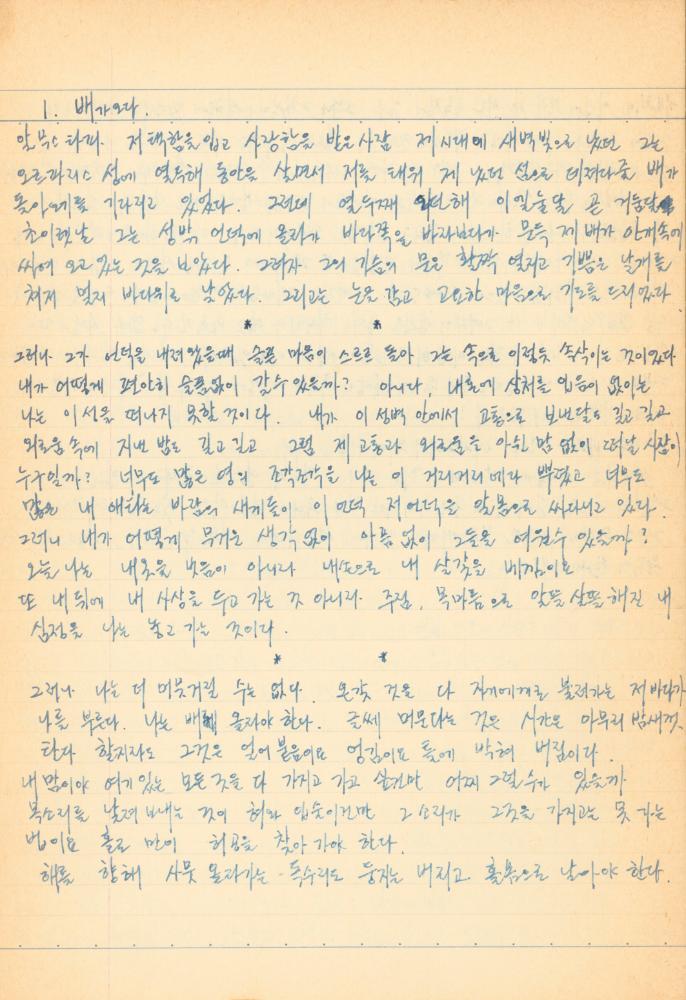 1. 배가오다.
알무스타파. 저 택함을 입고 사랑함을 받은 사람 제 시대에 새벽빛으로 났던 그는
오르파리스 성에 열두해 동안을 살면서 저를 태워 제 났던 섬으로 데려다 줄 배가
돌아오기를 기다리고 있었다. 그런데 열두째 되던 해 이엘눌달 곧 거둠달
초이렛날 그는 성밖 언덕에 올라가 바다쪽을 바라보다가 문득 제 배가 안개속에
싸여 오고 있는 것을 보았다. 그러자 그의 가슴의 문은 활짝 열리고 기쁨은 날개를
쳐 멀리 바다위로 날았다. 그리고는 눈을 감고 고요한 마음으로 기도를 드리었다
* *
그러나 그가 언덕을 내려왔을때 슬픈 마음이 스르르 돌아 그는 속으로 이렇듯 속삭이는 것이었다
내가 어떻게 편안히 슬픔없이 갈수 있을까? 아니다, 내 혼에 상처를 입음이 없이는
나는 이 성을 떠나지 못할 것이다. 내가 이 성벽 안에서 고통으로 보낸날도 길고 길고
외로움 속에 지낸 밤도 길고 길고 그럼 제 고통과 외로움을 아쉰 맘 없이 떠날 사람이
누구일까? 너무도 많은 영의 조각조각을 나는 이 거리거리에다 뿌렸고 너무도
많은 내 애타는 바람의 새끼들이 이 언덕 저 언덕을 알몸으로 싸다니고 있다.
그러니 내가 어떻게 무거운 생각 없이 아픔 없이 그들을 여윌수 있을까?
오늘 나는 내옷을 벗음이 아니라 내손으로 내 살갗을 베낌이요
또 내 뒤에 내 사상을 두고 가는 것 아니라 주림, 목마름으로 알뜰 살뜰해진 내
심정을 나는 놓고 가는 것이다.
* *
그러나 나는 더 머뭇거릴 수는 없다. 온갖 것을 다 자기에게로 불러가는 저 바다가
나를 부른다. 나는 배에 올라야 한다. 글쎄 머문다는 것은 시간은 아무리 밤새껏
탄다 할지라도 그것은 얼어붙음이요 엉김이요 틀에 박혀 버림이다.
내 맘이야 여기 있는 모든 것을 다 가지고 가고 싶건만 어찌 그럴수가 있을까
목소리를 날려 보내는 것이 혀와 입술이건만 그 소리가 그것을 가지고는 못 가는
법이요 홀로 만이 허공을 찾아가야 한다.
해를 향해 사뭇 올라가는 독수리도 둥지는 버리고 홀몸으로 날아야 한다.